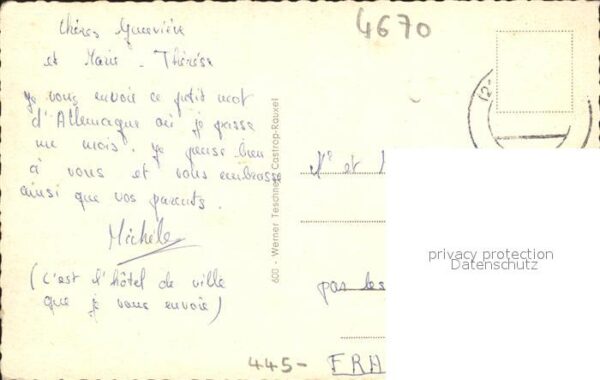 4670
chères Geneviève
et Marie-Thérèse
Je vous envoie ce petit mot
d'Allemagne où je passe
un mois. Je pense bien
à vous et vous embrasse
ainsi que vos parents.
Michèle
(c'est l'hôtel de ville
que je vous envoie)
600 - Werner Teschner, Castrop-Rauxel
(2
Mr et
pas les
445-
FRA
privacy protection
Datenschutz